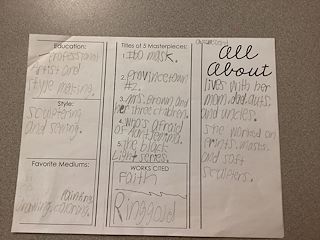 Education:
professional
artist and
style making.
Style:
sculptering
and sewing.
Favorite Mediums:
Painting
drawing,
Titles of 5 Masterpieces:
1. Ibo mask.
2. provincetown
#2.
3. Mrs. Brown and
her three children.
4. Who's afraid
of aunt jemima.
5. The black
Light series.
WORKS CITED
Faith
Ringgold
All
About
lives with her
mom, dad, auts
and uncles.
She worked on
prints, masks,
and soft
sculpters.